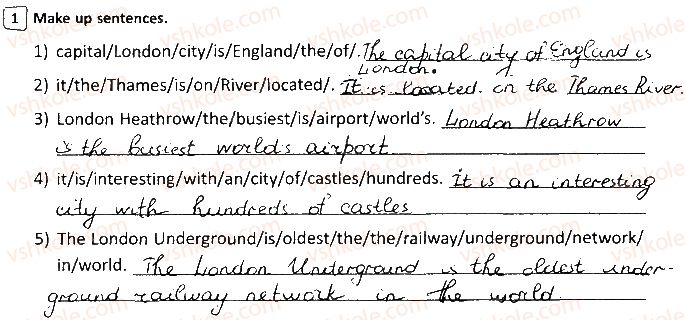 1 Make up sentences.
1) capital/London/city/is/England/the/of/. The capital city of England is
London.
2) it/the/Thames/is/on/River/located/. It is located on the Thames River.
3) London Heathrow/the/busiest/is/airport/world's. London Heathrow
is the busiest world's airport
4) it/is/interesting/with/an/city/of/castles/hundreds. it is an interesting
city with hundreds of castles
5) The London Underground/is/oldest/the/the/railway/underground/network/
in/world. The London Underground is the oldest under-
ground railway network in the world.